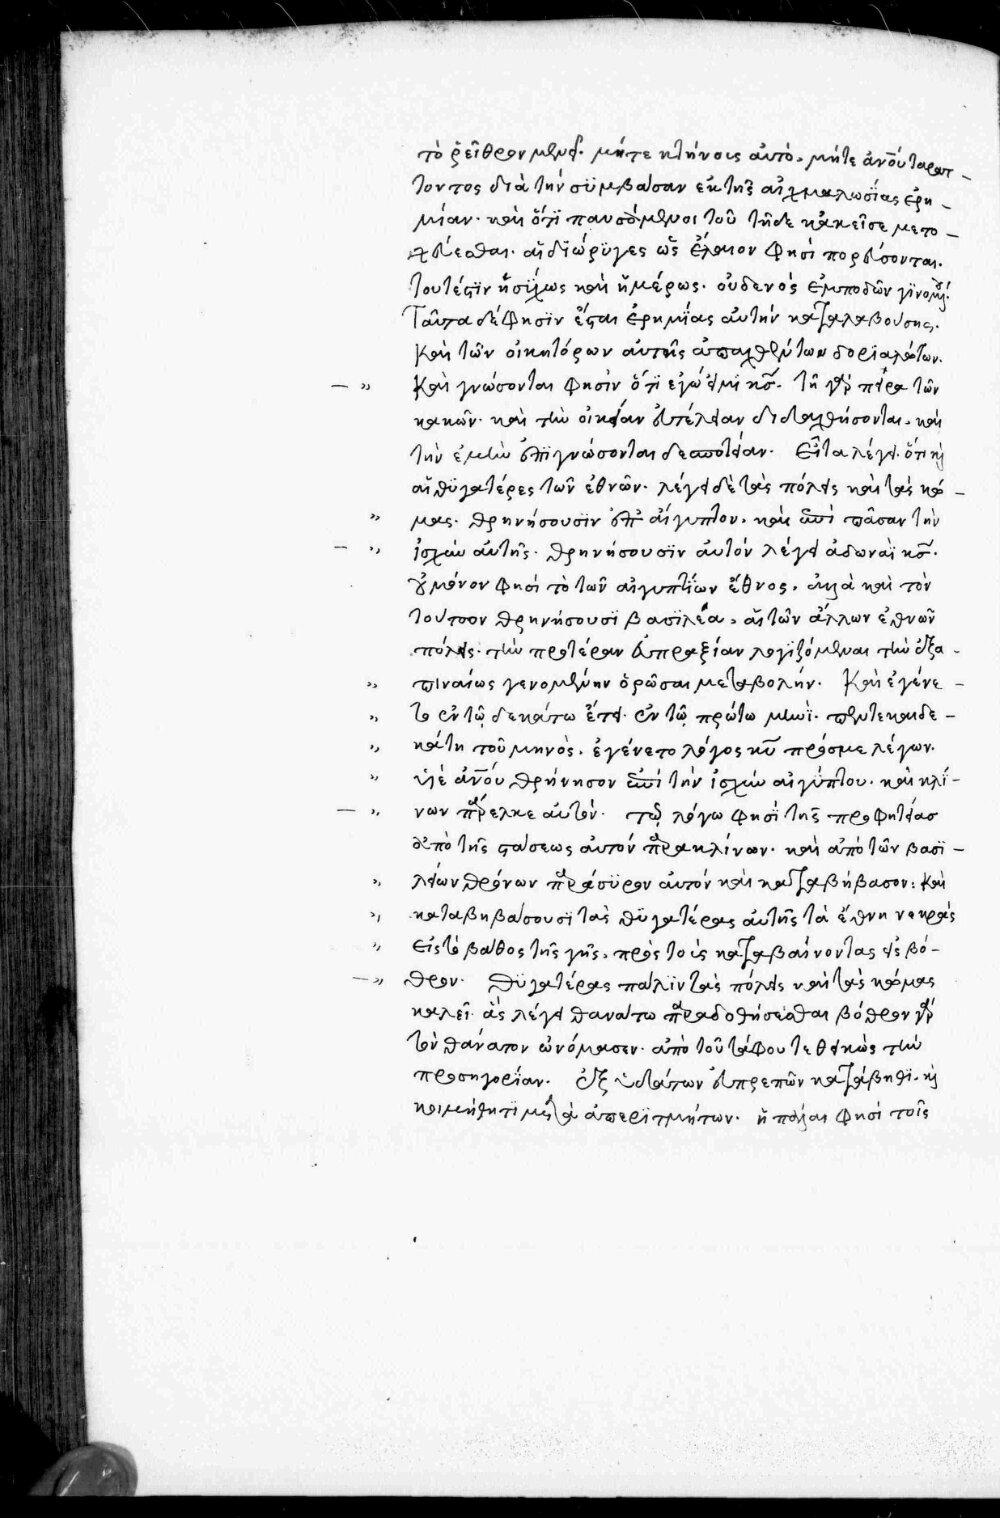 τὸ ῥεῖθρον μένει· μήτε κτήνους αὐτὸ, μήτε ἀνοῦ ταρατ-
τοντος διὰ τὴν συμβᾶσαν ἐκ τῆς αἰχμαλωσίας ἐρη-
μίαν· καὶ ὅτι παυσόμενοι τοῦ τῆδε κἀκεῖσε μετο-
χετεύεσθαι· αἱ διώρυγες ὡς ἔλαιον φησὶ πορεύσονται.
τουτέστιν ἡσύχως καὶ ἡμέρως· οὐδενὸς ἐμποδὼν γινομένου.
Ταῦτα δέ φησιν ἔσται ἐρημίας αὐτὴν καταλαβούσης.
Καὶ τῶν οἰκητόρων αὐτῆς ἀπαχθέντων δοριαλώτων.
Καὶ γνώσονται φησὶν ὅτι ἐγώ εἰμι κς̅. τῆ γὰρ πείρα τῶν
κακῶν· καὶ τὴν οἰκείαν εὐτέλειαν διδαχθήσονται, καὶ
τὴν ἐμὴν ἐπιγνώσονται δεσποτείαν. Εἶτα λέγει· ὅτι καὶ
αἱ θυγατέρες τῶν ἐθνῶν· λέγει δὲ τὰς πόλεις καὶ τὰς κώ-
μας. θρηνήσουσιν ἐπ' αἴγυπτον· καὶ ἐπὶ πᾶσαν τὴν
ἰσχὺν αὐτῆς· θρηνήσουσιν αὐτὸν λέγει ἀδωναῒ κς̅.
οὐ μόνον φησὶ τὸ τῶν αἰγυπτίων ἔθνος, ἀλλὰ καὶ τὸν
τούτου θρηνήσουσι βασιλέα, αἱ τῶν ἄλλων ἐθνῶν
πόλεις· τὴν προτέραν εὐπραξίαν λογιζόμεναι τὴν ἐξα-
πιναίως γενομένην ὁρῶσαι μεταβολήν. Καὶ ἐγένε-
το ἐν τῷ δεκάτω ἔτει· ἐν τῷ πρώτω μηνὶ· πεντεκαιδε-
κάτη τοῦ μηνὸς, ἐγένετο λόγος κυ̅ πρός με λέγων.
υἱὲ ἀνοῦ θρήνησον ἐπὶ τὴν ἰσχὺν αἰγύπτου· καὶ κλί-
νων παρέλκε αὐτόν. τῷ λόγω φησὶ τῆς προφητείας
ἀπὸ τῆς στάσεως αὐτὸν παρακλίνων· καὶ ἀπὸ τῶν βασι-
λείων θρόνων παράσυρον αὐτὸν καὶ καταβίβασον: Καὶ
καταβηβάσουσι τὰς θυγατέρας αὐτῆς τὰ ἔθνη νεκρὰς
εἰς τὸ βάθος τῆς γῆς, πρὸς τοὺς καταβαίνοντας εἰς βό-
θρον. θυγατέρας πάλιν τὰς πόλεις καὶ τὰς κώμας
καλεῖ ἃς λέγει θανάτω παραδοθήσεσθαι βόθρον γὰρ
τὸν θάνατον ὠνόμασεν· ἀπὸ τοῦ τάφου τεθεικὼς τὴν
προσηγορίαν. ἐξ ὑδάτων εὐπρεπῶν κατάβηθι, καὶ
κοιμήθητι μετὰ ἀπεριτμήτων. ἢ πάλαι φησὶ τοῖς